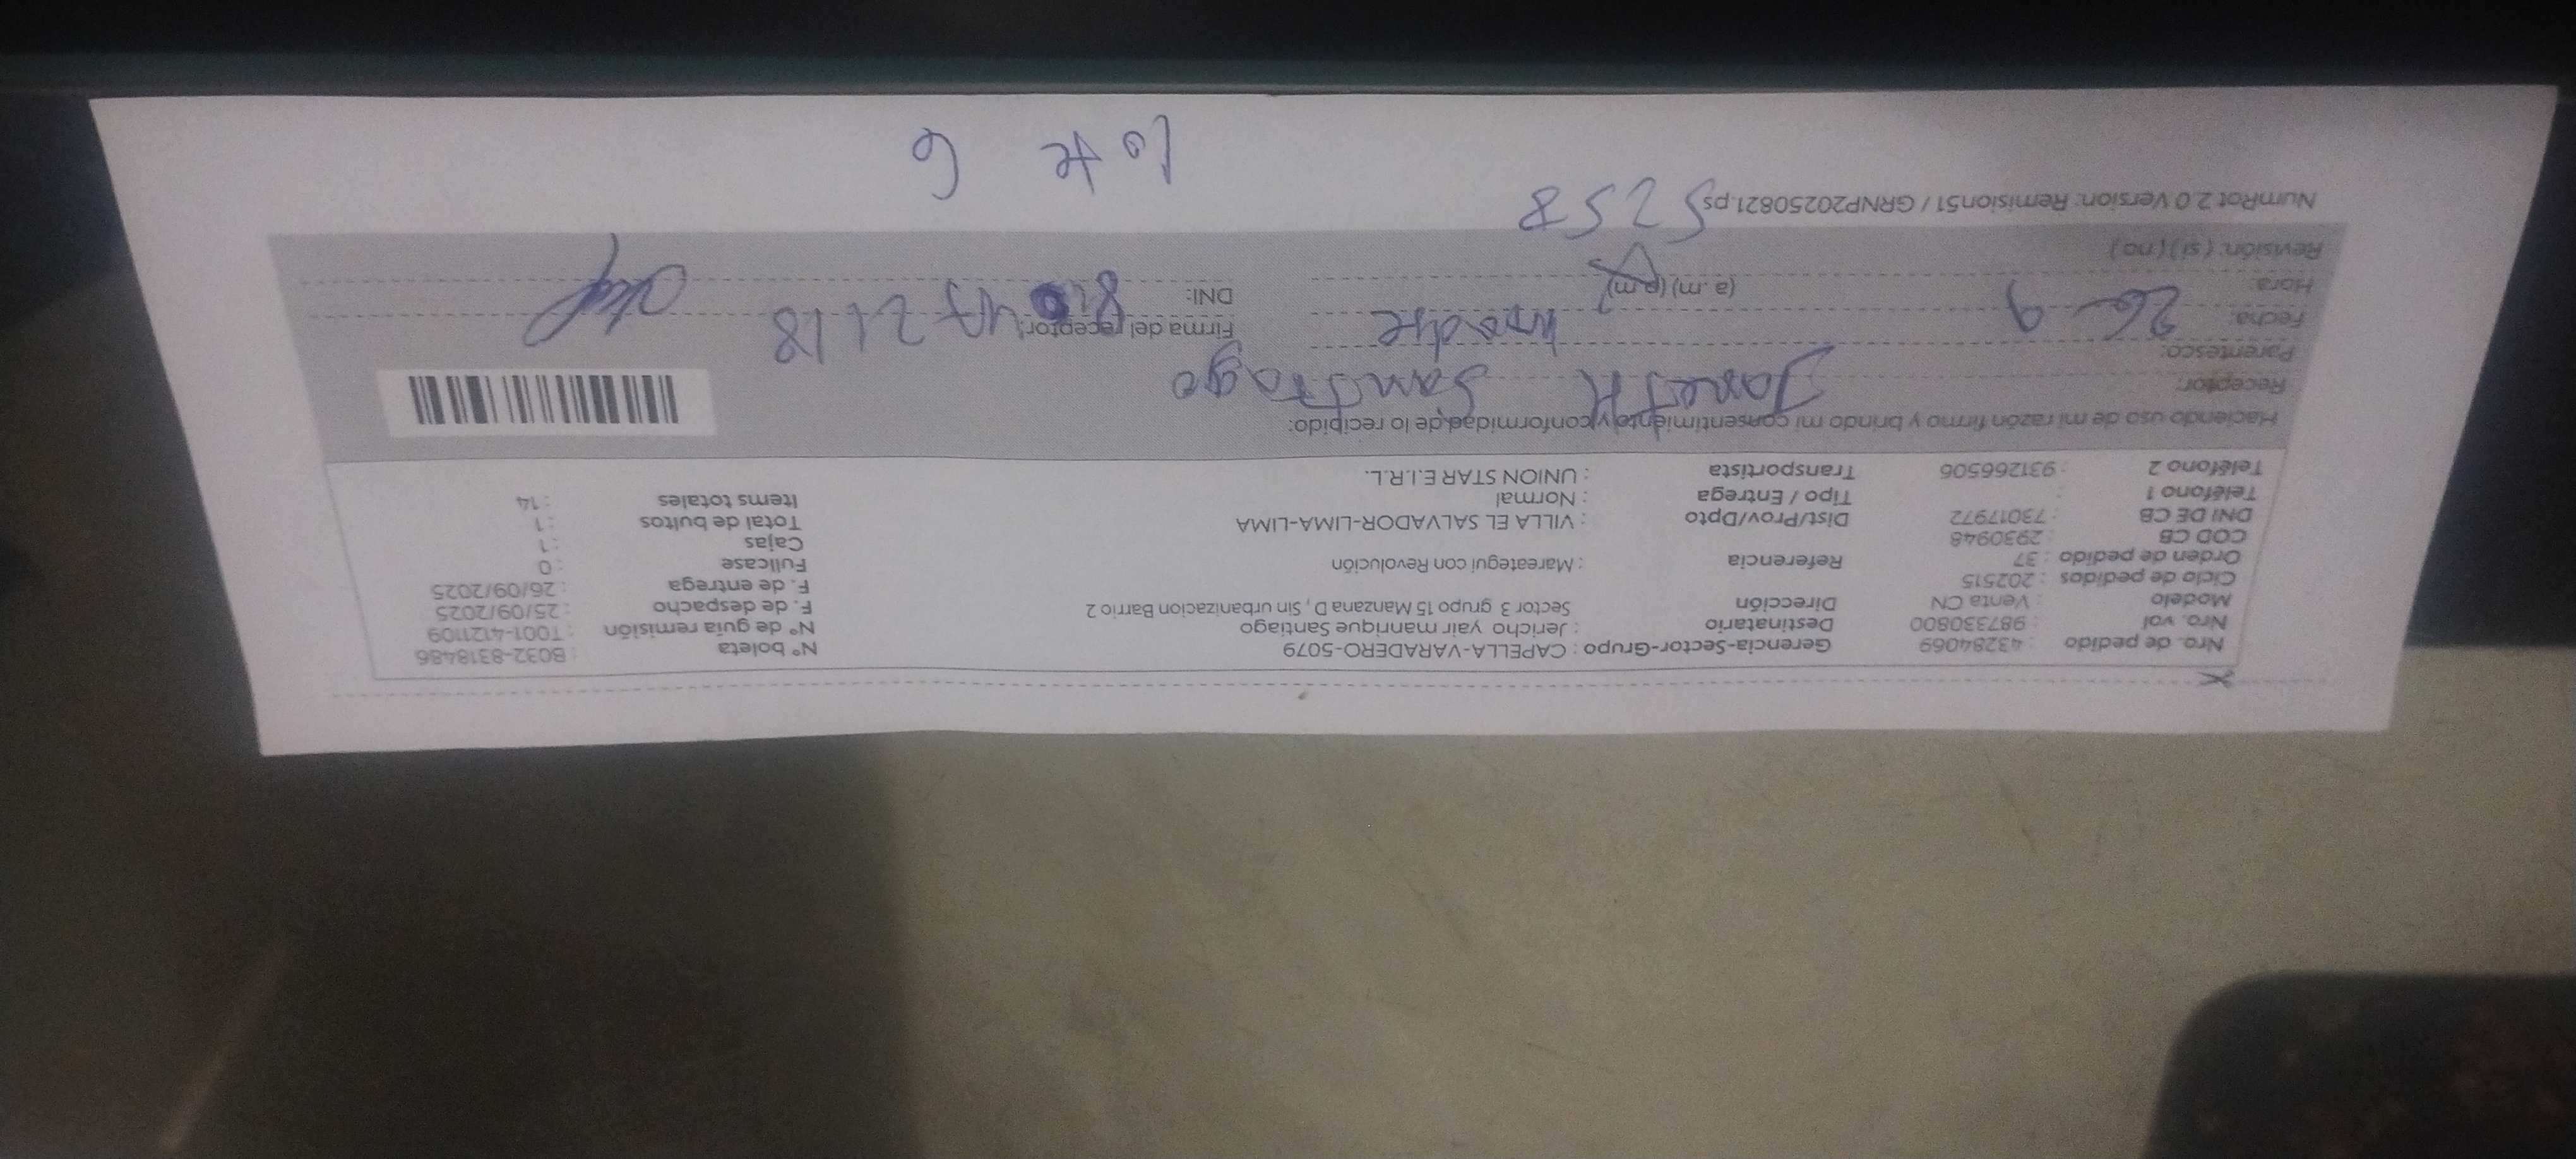 Nro. de pedido : 43284069 Gerencia-Sector-Grupo : CAPELLA-VARADERO-5079 N° boleta : B032-8318486
Nro. vol : 987330800 Destinatario : Jericho yair manrique Santiago N° de guía remisión : T001-4121109
Modelo : Venta CN Dirección Sector 3 grupo 15 Manzana D , Sin urbanizacion Barrio 2 F. de despacho : 25/09/2025
Ciclo de pedidos : 202515 F. de entrega : 26/09/2025
Orden de pedido : 37 Referencia : Mareategui con Revolución Fullcase : 0
COD CB : 2930948 Cajas : 1
DNI DE CB : 73017972 Dist/Prov/Dpto : VILLA EL SALVADOR-LIMA-LIMA Total de bultos : 1
Teléfono 1 : Tipo / Entrega : Normal Items totales : 14
Teléfono 2 : 931266506 Transportista : UNION STAR E.I.R.L.
Haciendo uso de mi razón firmo y brindo mi consentimiento y conformidad de lo recibido:
Receptor: Janeth Santiago
Parentesco: madre
Fecha: 26-9 Firma del receptor:
Hora: (a.m) (p.m) DNI:
Revisión: (si) (no)
NumRot 2.0 Version: Remision51 / GRNP20250821.ps 5258
Lote 6